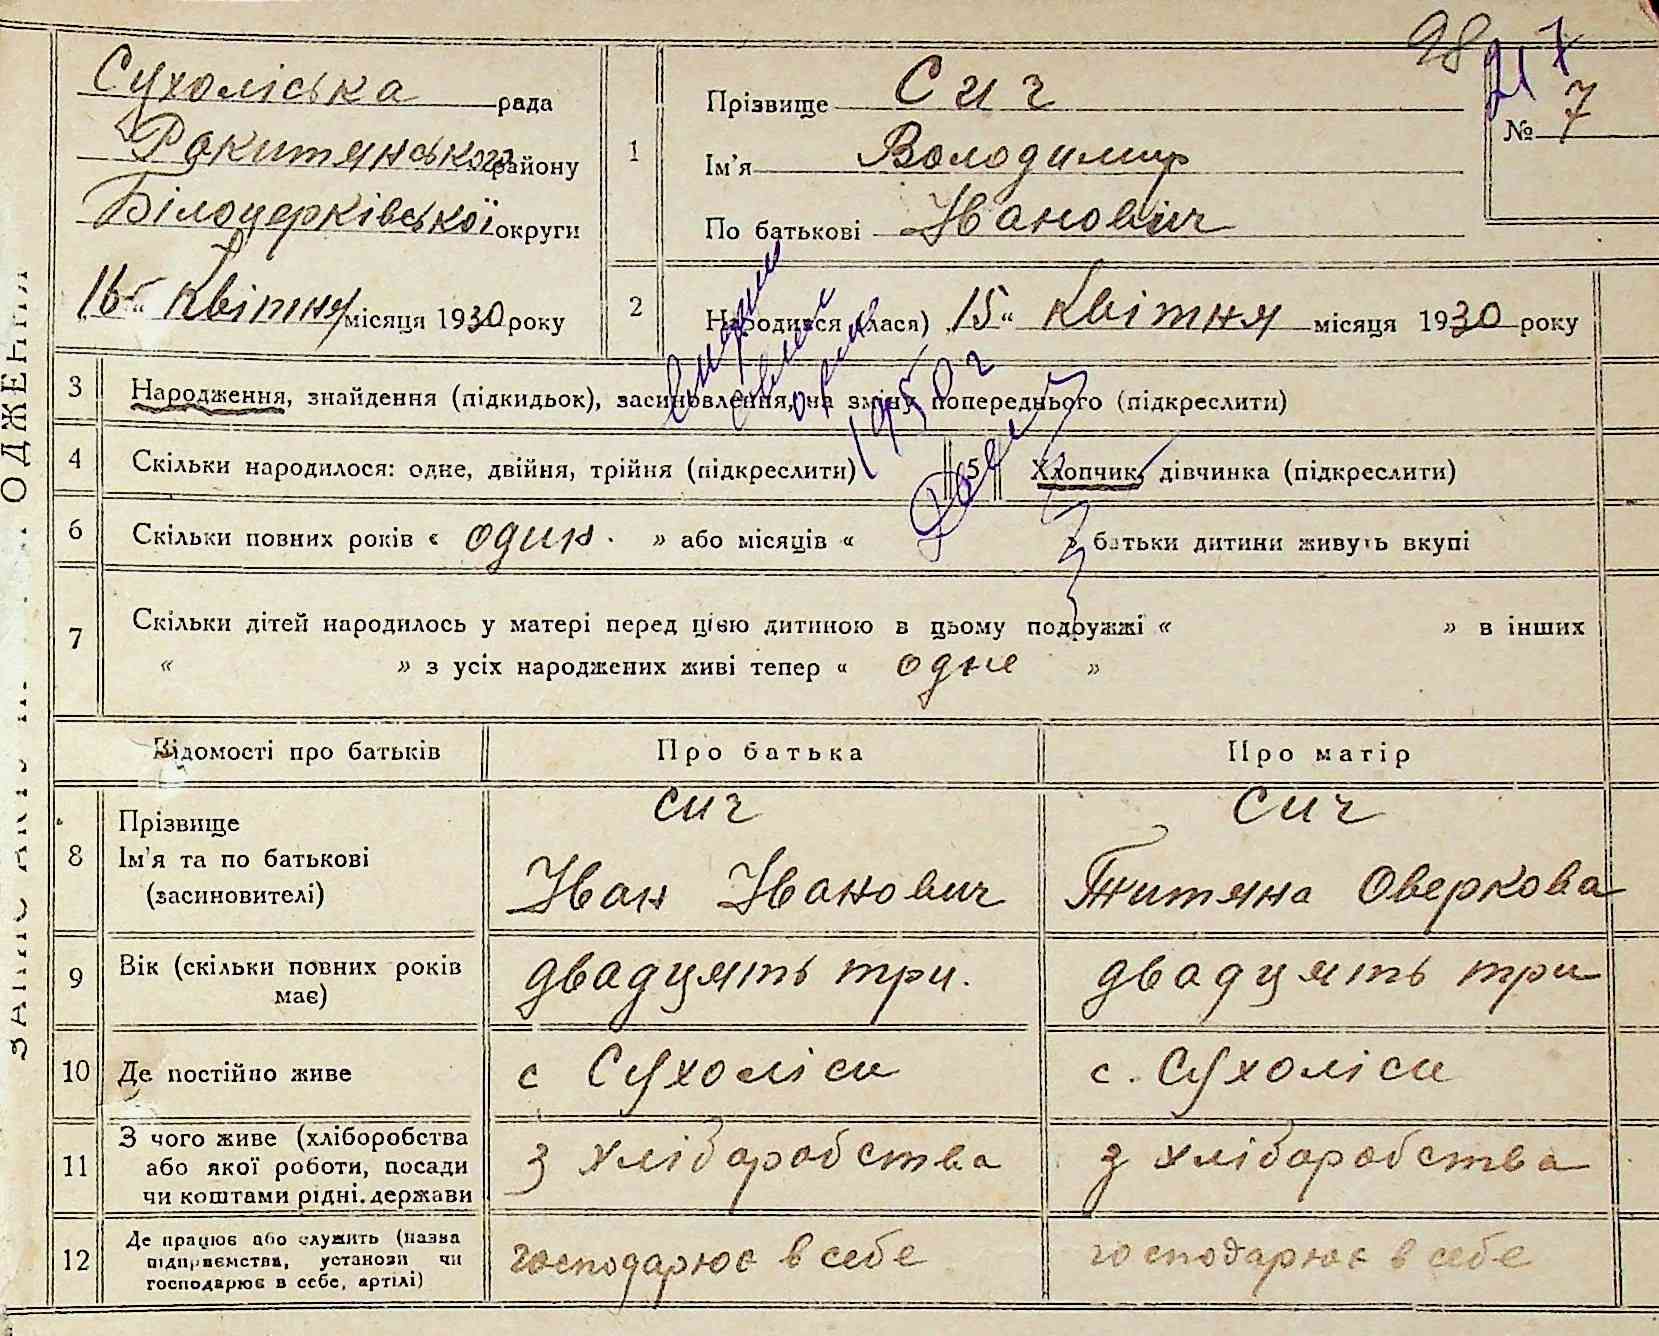 98
217
Сухоліська рада
Рокитянського району
Білоцерківської округи
„16“ квітня місяця 1930 року
№ 7
1
Прізвище Сич
Ім'я Володимир
По батькові Іванович
2
Народився (лася) „15“ квітня місяця 1930 року
3
Народження, знайдення (підкидьок), засиновлення, на зміну попереднього (підкреслити)
1950 г
4
Скільки народилося: одне, двійня, трійня (підкреслити)
5
Хлопчик, дівчинка (підкреслити)
6
Скільки повних років « один. » або місяців « » батьки дитини живуть вкупі
7
Скільки дітей народилось у матері перед цією дитиною в цьому подружжі « » в інших
« » з усіх народжених живі тепер « одне »
Відомості про батьків
Про батька
Про матір
8
Прізвище
Ім'я та по батькові
(засиновителі)
Сич
Іван Іванович
Сич
Титяна Оверкова
9
Вік (скільки повних років
має)
двадцять три.
двадцять три
10
Де постійно живе
с Сухоліси
с. Сухоліси
11
З чого живе (хліборобства
або якої роботи, посади
чи коштами рідні, держави
з хліборобства
з хліборобства
12
Де працює або служить (назва
підприємства, установи чи
господарює в себе, артілі)
господарює в себе
господарює в себе